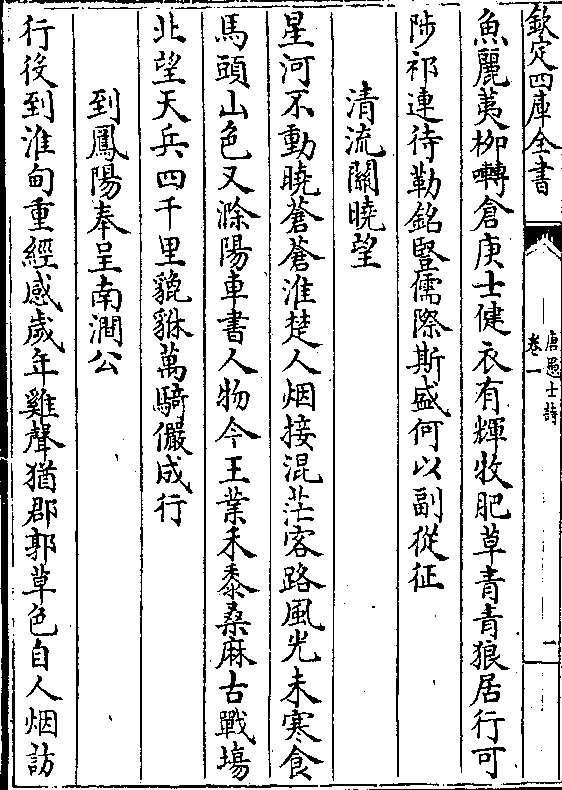 欽定四庫全書
唐愚士詩
卷一
一
魚麗荑栁囀倉庚士健衣有輝牧肥草青青狼居行可
陟祁連待勒銘豎儒際斯盛何以副從征
清流關曉望
星河不動曉蒼蒼淮楚人烟接混茫客路風光未寒食
馬頭山色又滁陽車書人物今王業禾黍桑麻古戰塲
北望天兵四千里貔貅萬騎儼成行
到鳳陽奉呈南澗公
行役到淮甸重經感歲年雞聲猶郡郭草色自人烟訪